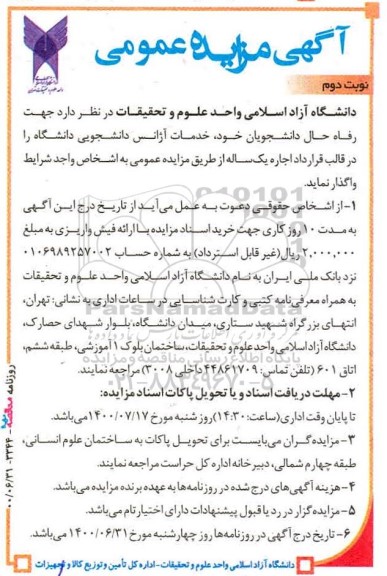 آگهی مزایده عمومی
نوبت دوم
دانشگاه آزاد اسلامی واحد علوم و تحقیقات در نظر دارد جهت
رفاه حال دانشجویان خود، خدمات آژانس دانشجویی دانشگاه را
در قالب قرارداد اجاره یک‌ساله از طریق مزایده عمومی به اشخاص واجد شرایط
واگذار نماید.
۱- از اشخاص حقوقی دعوت به عمل می‌آید از تاریخ درج این آگهی
به مدت ۱۰ روز کاری جهت خرید اسناد مزایده با ارائه فیش واریزی به مبلغ
۲,۰۰۰,۰۰۰ ریال (غیر قابل استرداد) به شماره حساب ۰۱۰۶۹۸۹۲۵۷۰۰۲
نزد بانک ملی ایران به نام دانشگاه آزاد اسلامی واحد علوم و تحقیقات
به همراه معرفی‌نامه کتبی و کارت شناسایی در ساعات اداری به نشانی: تهران،
انتهای بزرگراه شهید ستاری، میدان دانشگاه، بلوار شهدای حصارک،
دانشگاه آزاد اسلامی واحد علوم و تحقیقات، ساختمان بلوک ۱ آموزشی، طبقه ششم،
اتاق ۶۰۱ (تلفن تماس: ۴۴۸۶۱۷۰۹ داخلی ۳۰۰۸) مراجعه نمایند.
۲- مهلت دریافت اسناد و یا تحویل پاکات اسناد مزایده:
تا پایان وقت اداری (ساعت: ۱۴:۳۰) روز شنبه مورخ ۱۴۰۰/۰۷/۱۷ می‌باشد.
۳- مزایده‌گران می‌بایست برای تحویل پاکات به ساختمان علوم انسانی،
طبقه چهارم شمالی، دبیرخانه اداره کل حراست مراجعه نمایند.
۴- هزینه آگهی‌های درج شده در روزنامه‌ها به عهده برنده مزایده می‌باشد.
۵- مزایده‌گزار در رد یا قبول پیشنهادات دارای اختیار تام می‌باشد.
۶- تاریخ درج آگهی در روزنامه‌ها روز چهارشنبه مورخ ۱۴۰۰/۰۶/۳۱ می‌باشد.
دانشگاه آزاد اسلامی واحد علوم و تحقیقات - اداره کل تأمین و توزیع کالا و تجهیزات
ParsNamadData
پایگاه اطلاع رسانی مناقصه و مزایده
۰۲۱-۸۸۳۴۹۶۷۰-۵
روزنامه
۰۰/۰۶/۳۱-۳۲۴۴